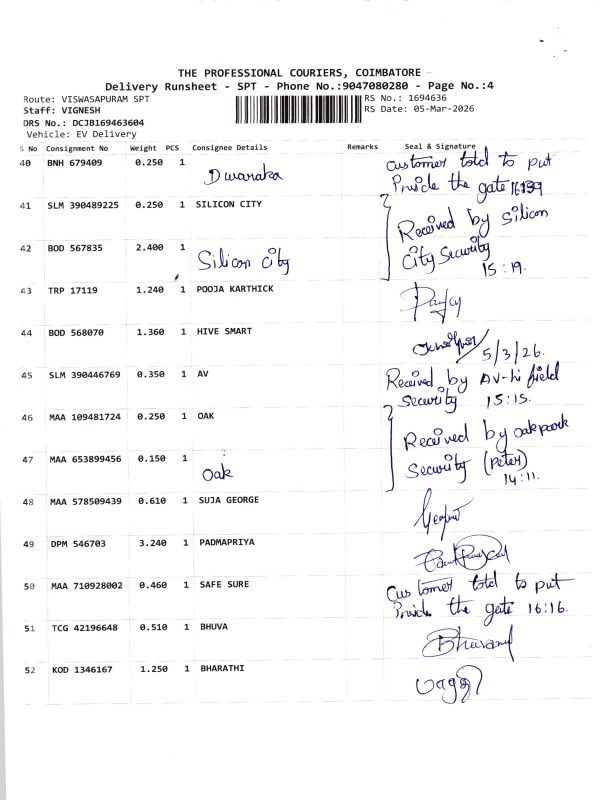 THE PROFESSIONAL COURIERS, COIMBATORE
Delivery Runsheet - SPT - Phone No.:9047080280 - Page No.:4
Route: VISWASAPURAM SPT RS No.: 1694636
Staff: VIGNESH RS Date: 05-Mar-2026
DRS No.: DCJB169463604
Vehicle: EV Delivery
S No Consignment No Weight PCS Consignee Details Remarks Seal & Signature
40 BNH 679409 0.250 1 Dwaraka Customer told to put
Pnside the gate
41 SLM 390489225 0.250 1 SILICON CITY
Received by Silicon
42 BOD 567835 2.400 1 Silicon City City Security
15:19.
43 TRP 17119 1.240 1 POOJA KARTHICK
44 BOD 568070 1.360 1 HIVE SMART
5/3/26.
45 SLM 390446769 0.350 1 AV Received by AV-hi field
Security 15:15.
46 MAA 109481724 0.250 1 OAK
Received by oakpark
47 MAA 653899456 0.150 1 Oak Security (Peter)
14:11.
48 MAA 578509439 0.610 1 SUJA GEORGE
49 DPM 546703 3.240 1 PADMAPRIYA
50 MAA 710928002 0.460 1 SAFE SURE Customer told to put
Pnside the gate 16:16.
51 TCG 42196648 0.510 1 BHUVA
52 KOD 1346167 1.250 1 BHARATHI